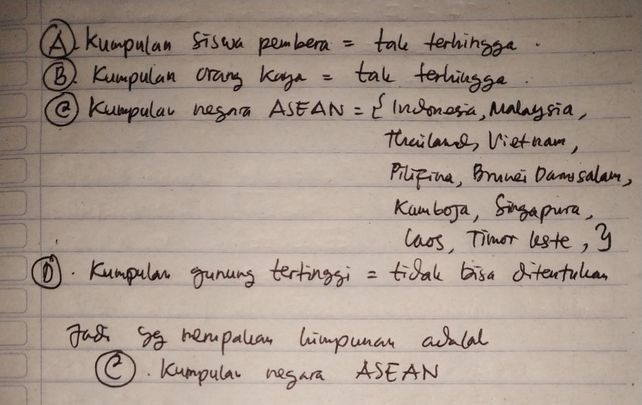 A. Kumpulan siswa pembera = tak terhingga.
B. Kumpulan orang kaya = tak terhingga.
C Kumpulan negara ASEAN = { Indonesia, Malaysia,
Thailand, Vietnam,
Pilifina, Brunei Darusalam,
Kamboja, Singapura,
Laos, Timor leste, }
D. Kumpulan gunung tertinggi = tidak bisa ditentukan
Jadi yg merupakan himpunan adalah
C. Kumpulan negara ASEAN